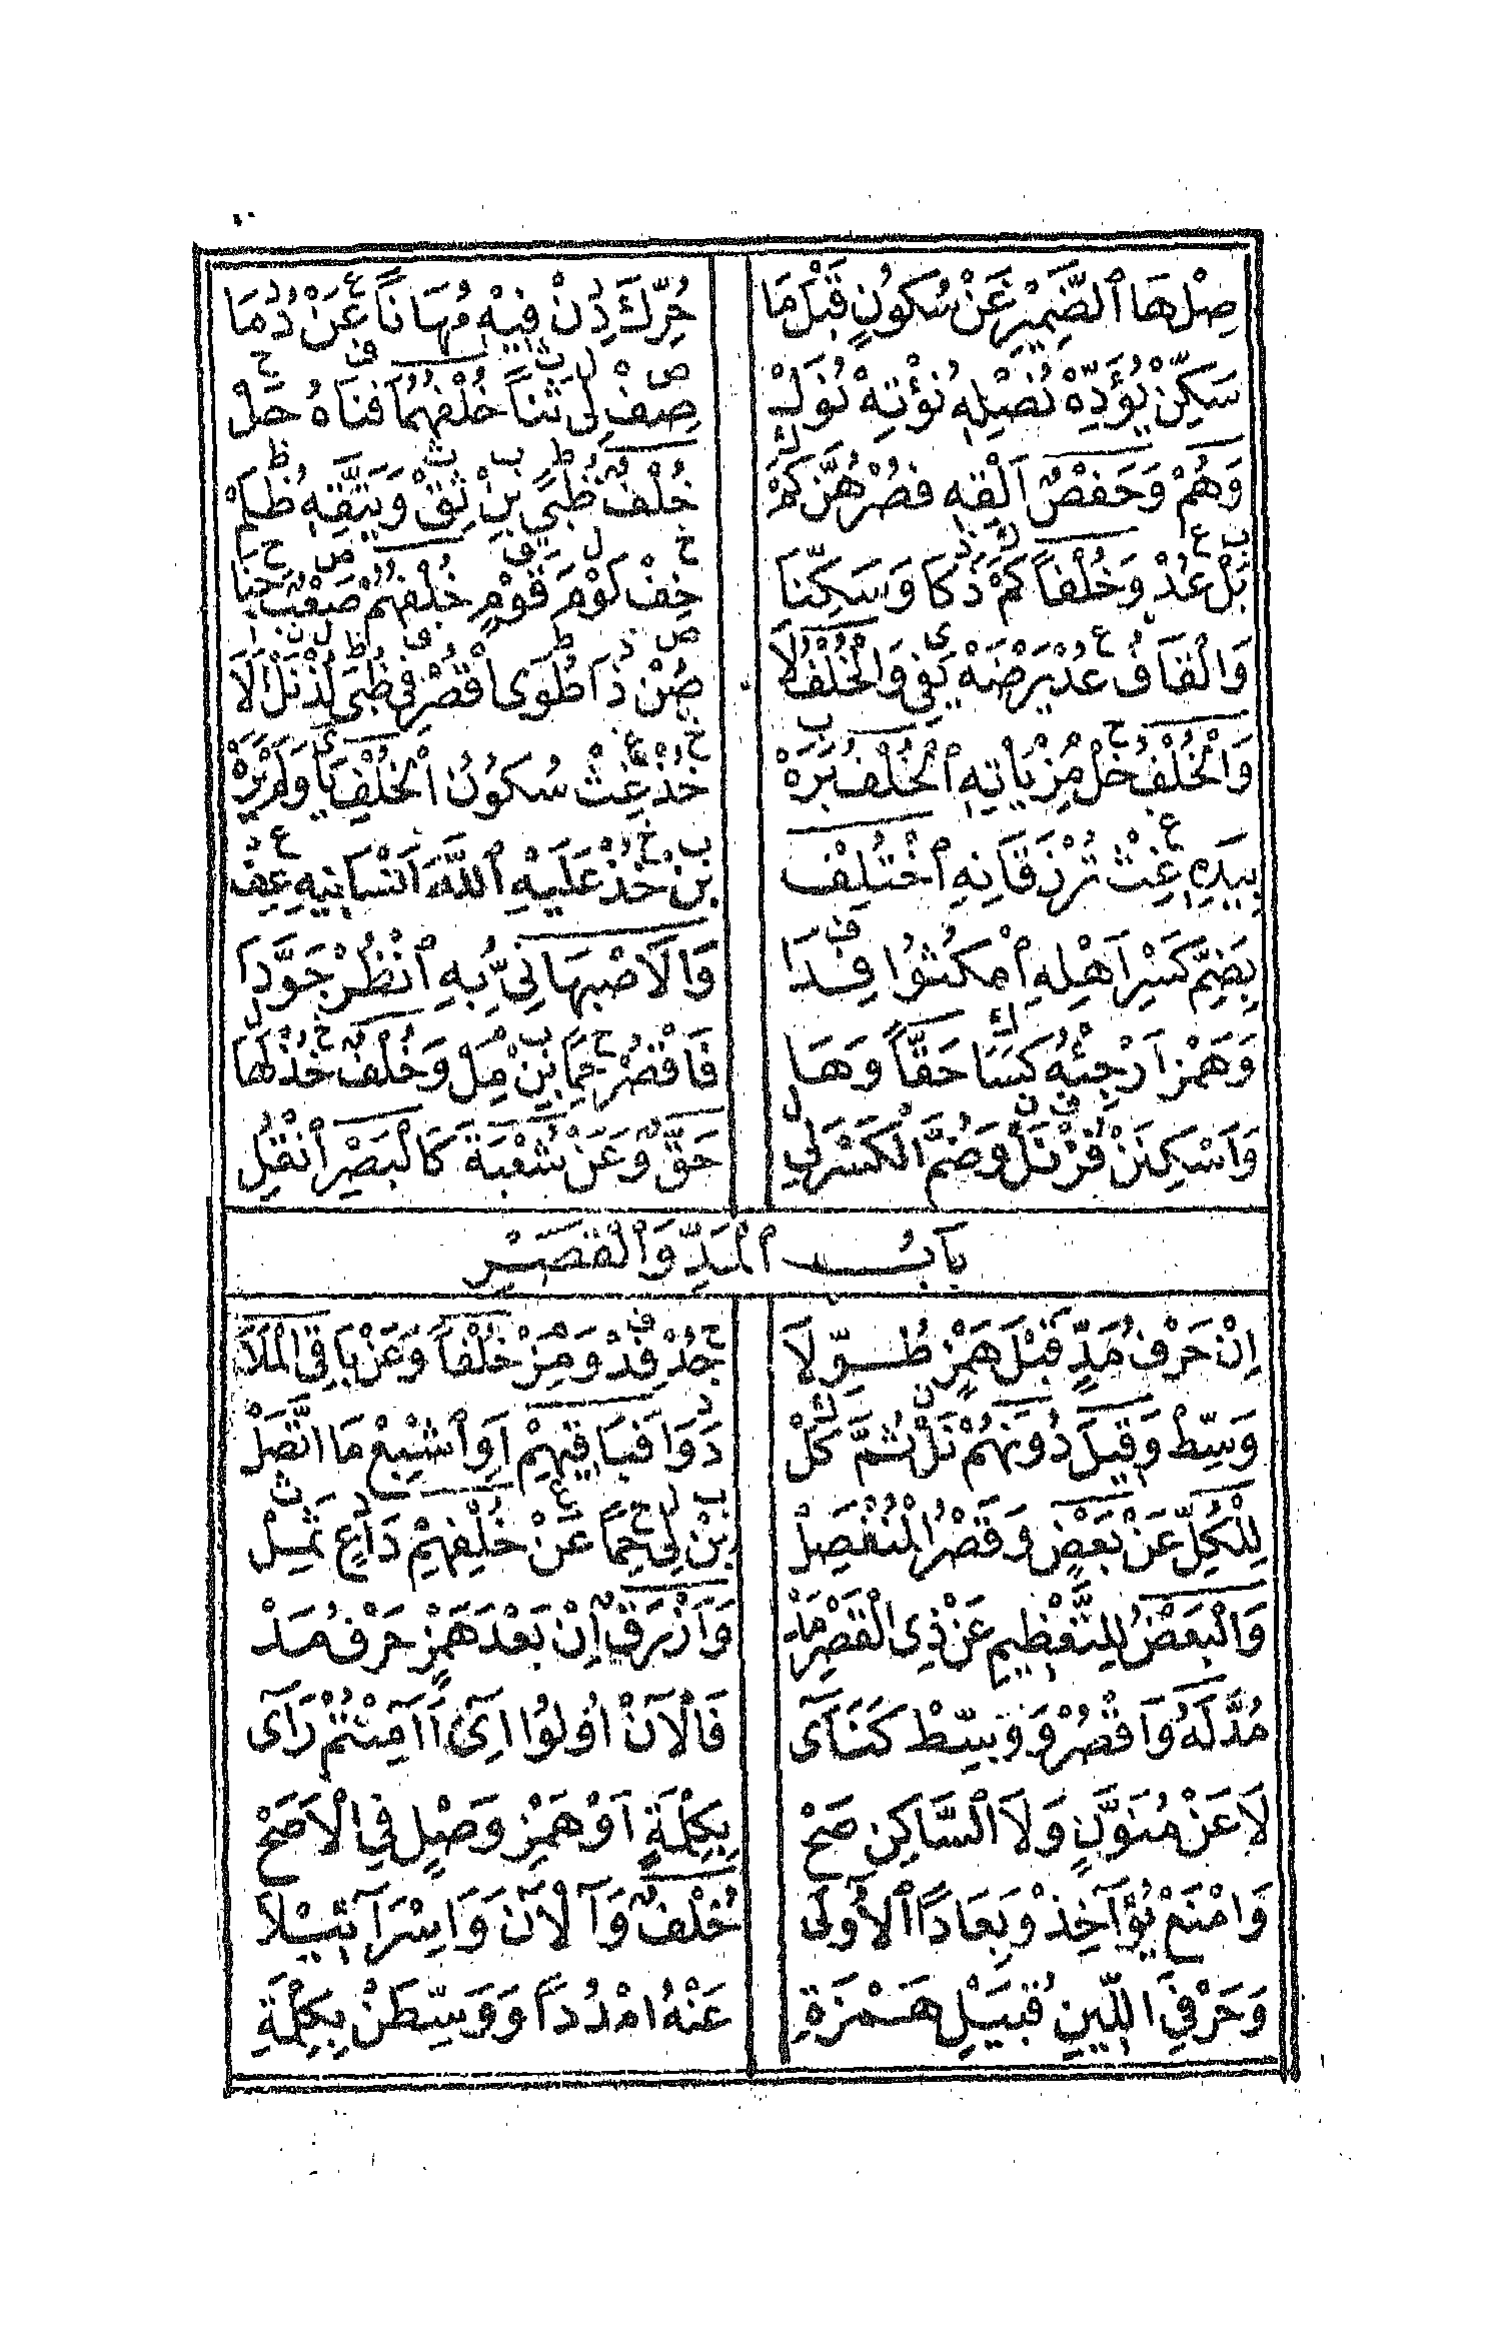 صِلْ هَا ٱلضَّمِيرِ عَنْ سُكُونٍ قَبْلَ مَا حُرِّكَ دِنْ فِيهِ مُهَانًا عَنْ دُمَا
سَكِّنْ يُؤَدِّهْ نُصْلِهِ نُؤْتِهْ نُوَلْ صِفْ لِى ثَنًا خُلْفُهُمَا فَنَاهُ حَلْ
وَهُمْ وَحَفْصٌ اَلْقِهِ قْصُرْهُنَّ كَمْ خُلْفٌ ظُبًى بِنْ ثِقْ وَيَتَّقِهِ ظُلَمْ
بَلْ عُدْ وَخُلْفًا كَمْ ذَكَا وَسَكِّنَا خِفْ لَوْمَ قَوْمٍ خُلْفُهُمْ صَعْبٌ حَنَا
وَالْقَافُ عُدْ يَرْضَهْ يَفِى وَالْخُلْفُ لَا صُنْ ذَا طُوًى اقْصُرْ فِى ظُبًى لُذْ نَلْ اَلَا
وَالْخُلْفُ خَلْ مِزْ يَاْتِهِ ٱلْخُلْفُ بُرَهْ خُذْ غِثْ سُكُونُ ٱلْخُلْفِ يَا وَلَمْ يَرَهْ
بِيَدِهِ غِثْ تُرْزَقَانِهِ ٱخْتُلِفْ بِنْ خُذْ عَلَيْهِ ٱللّٰهَ اَنْسَانِيهِ عِفْ
بِضَمِّ كَسْرٍ اَهْلِهِ ٱمْكُثُوا فِدَا وَالْاَصْبِهَانِىُّ بِهِ ٱنْظُرْ جَوَّدَا
وَهَمْزُ اَرْجِئْهُ كَسَا حَقًّا وَهَا فَاقْصُرْ حِمًا بِنْ مِلْ وَخُلْفٌ خُذْ لَهَا
وَاَسْكِنَنْ فُزْ نَلْ وَضُمَّ الْكَسْرَ لِى حَقٌّ وَعَنْ شُعْبَةَ كَالْبَصْرِ ٱنْقُلِ
بَابُ ٱلْمَدِّ وَٱلْقَصْرِ
اِنْ حَرْفُ مَدٍّ قَبْلَ هَمْزٍ طُوِّلَا جُدْ فِدْ وَمِزْ خُلْفًا وَعَنْ بَاقِى الْمَلَا
وَسِّطْ وَقِيلَ دُونَهُمْ نَلْ ثُمَّ كَلْ رَوَا فَبَاقِيهِمْ اَوْ ٱشْبِعْ مَا اتَّصَلْ
لِلْكُلِّ عَنْ بَعْضٍ وَقَصْرُ الْمُنْفَصِلْ بِنْ لِى حِمًا عَنْ خُلْفِهِمْ دَاعٍ ثَمِلْ
وَالْبَعْضُ لِلتَّعْظِيمِ عَنْ ذِى الْقَصْرِ مَدْ وَاَزْرَقٌ اِنْ بَعْدَ هَمْزٍ حَرْفُ مَدْ
مُدَّ لَهُ وَاقْصُرْ وَوَسِّطْ كَنَآى فَالْاٰنَ اُوتُوا اِىْ ءَاٰمَنْتُمْ رَآى
لَا عَنْ مُنَوَّنٍ وَلَا ٱلسَّاكِنِ صَحْ بِكِلْمَةٍ اَوْ هَمْزِ وَصْلٍ فِى الْاَصَحْ
وَامْنَعْ يُؤَاخِذْ وَبِعَادًا ٱلْاُولَى خُلْفٌ وَآلْاٰنَ وَاِسْرَآئِيلَا
وَحَرْفَىِ اللِّينِ قُبَيْلَ هَمْزَةِ عَنْهُ امْدُدًا وَوَسِّطَنْ بِكِلْمَةِ